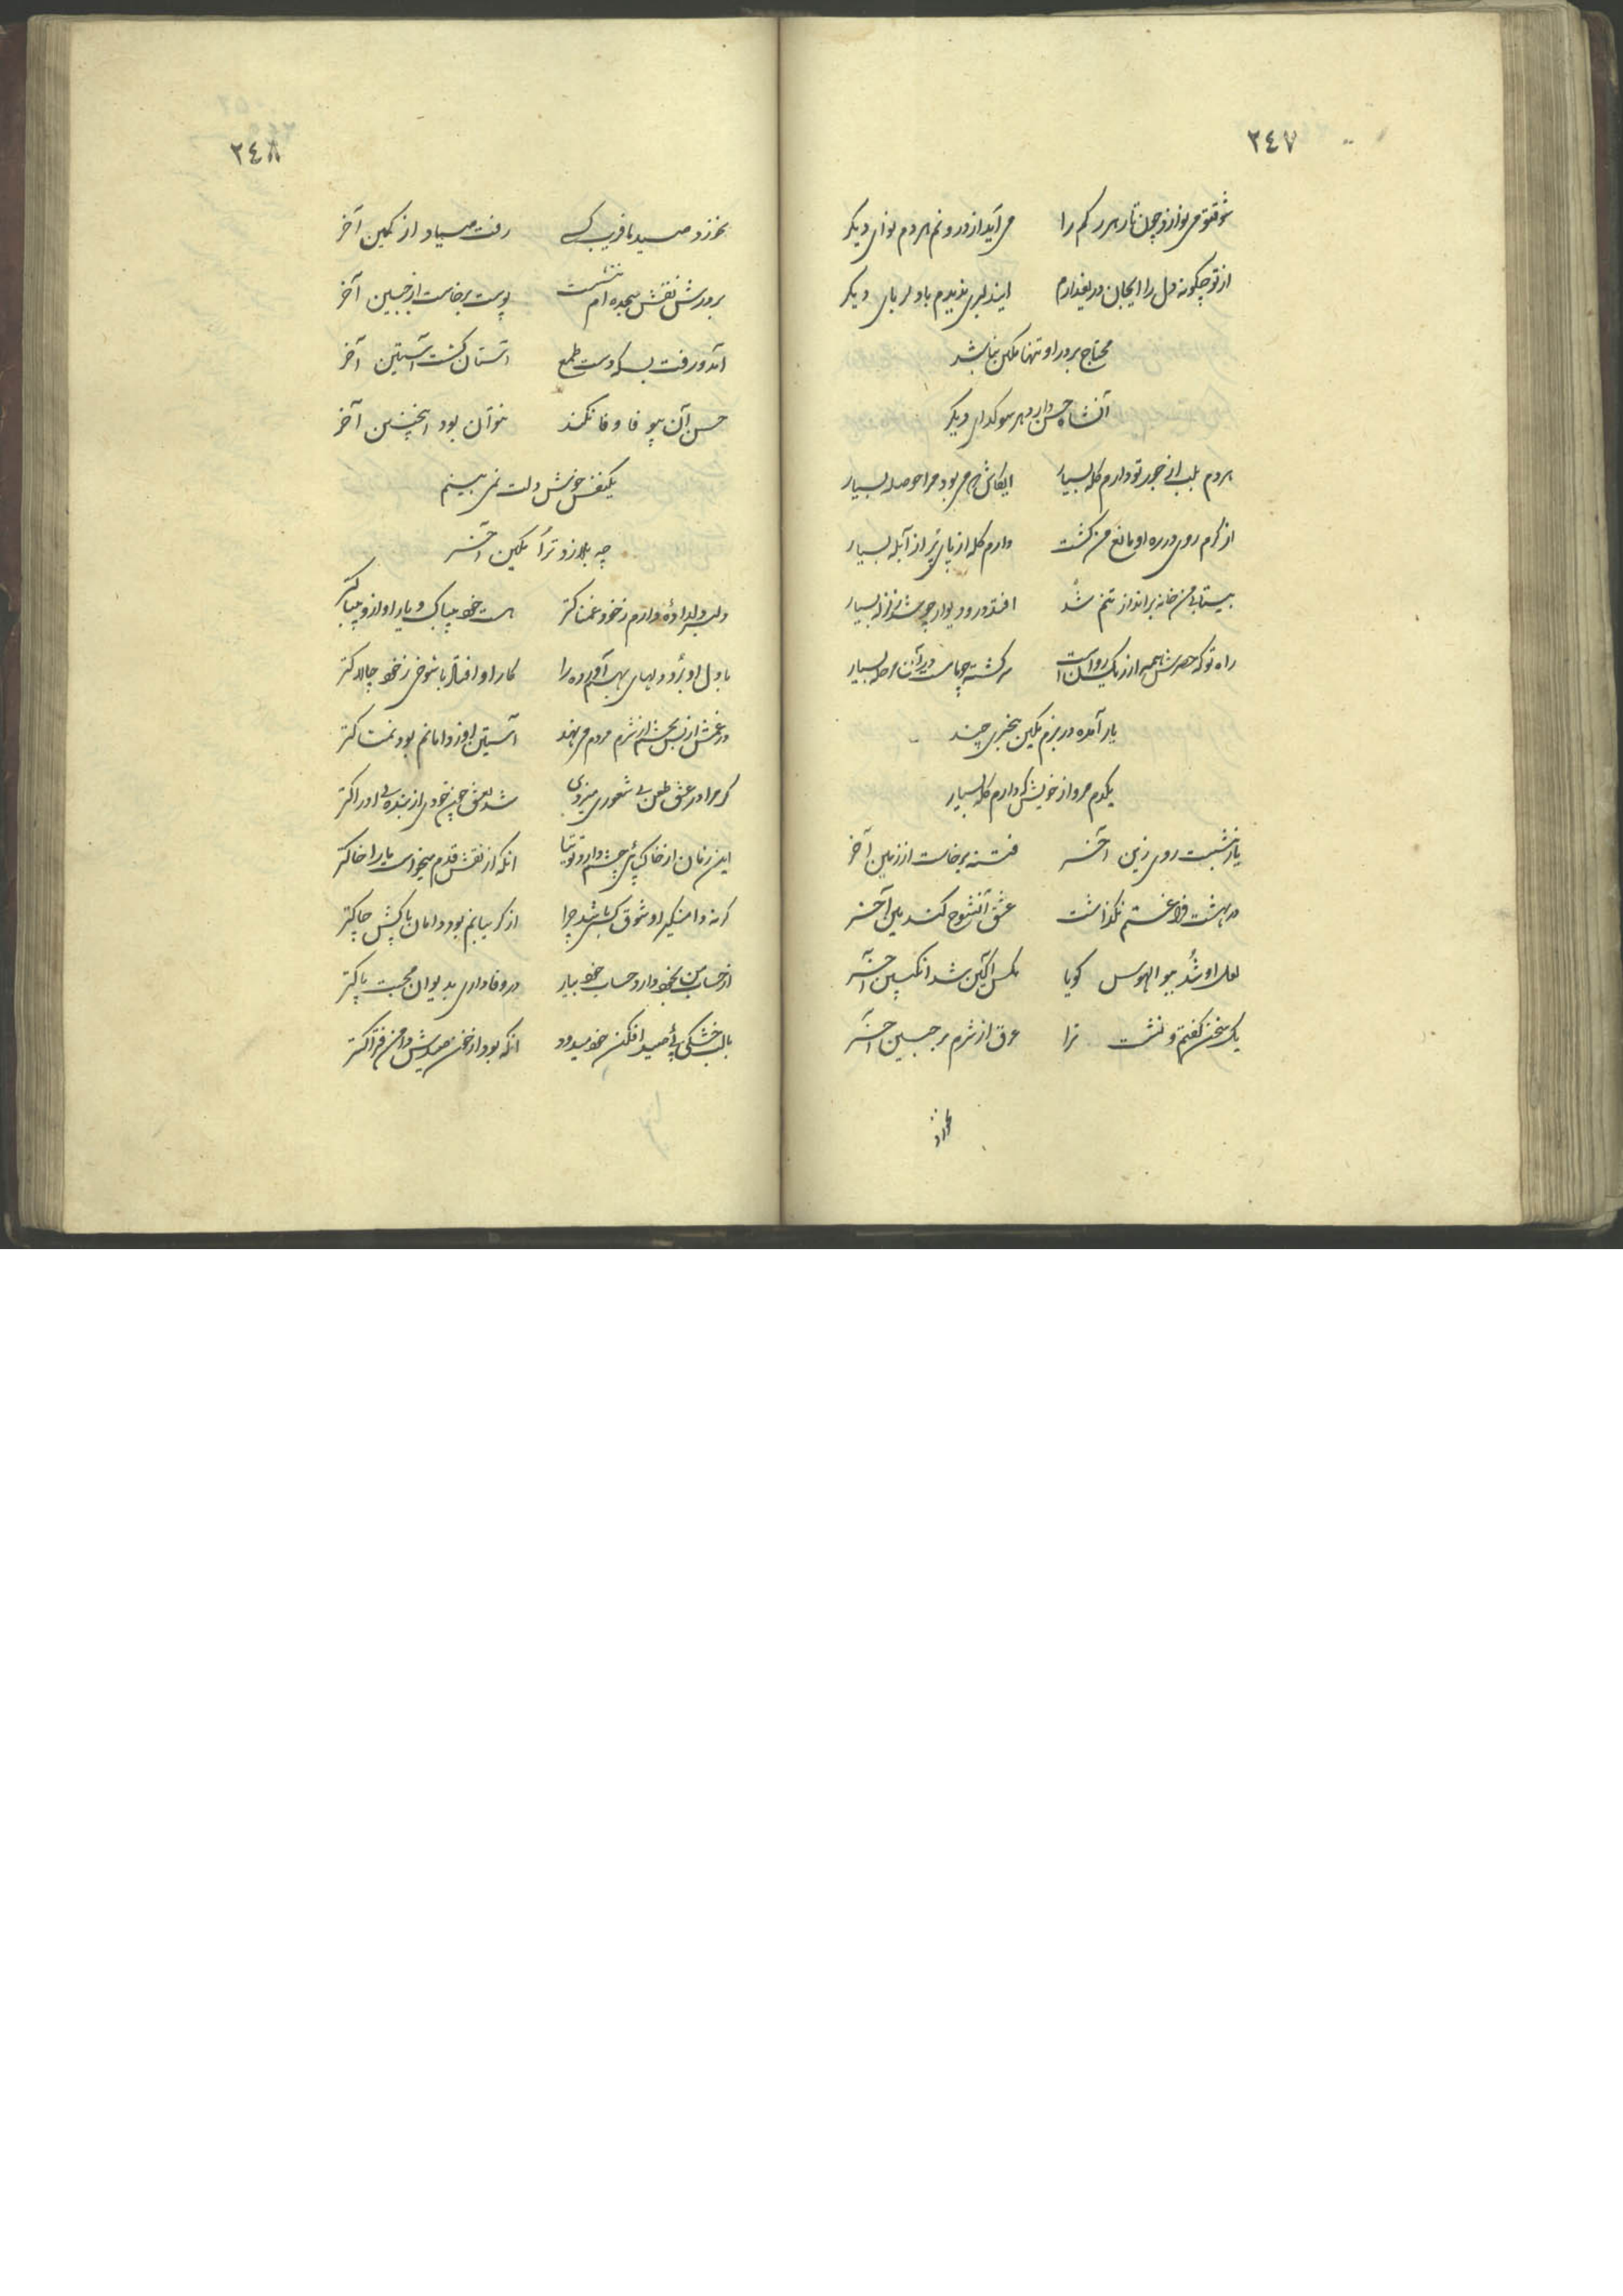 ٢٤٧
شوقتو می نوازد چون تار هر رکم را می آید از درونم هردم نوای دیکر
از تو چکونه دل را ایجان دریغ دارم ایندلبری ندیدم با دلربای دیکر
محتاج بر در او تنها مکین نباشد
آنشاه حسن دارد هر سو کدای دیکر
هردم بلب از جور تو دارم کله بسیار ایکاش که می بود مرا حوصله بسیار
از کرم روی در ره او مانع من کشت دارم کله از پای پر از آبله بسیار
بیتابی من خانه برانداز تنم شد افتد در و دیوار چو شد زلزله بسیار
راه تو که همرش از یک روان است سرکشته در آن قافله بسیار
یار آمده در بزم مکین بیخبری چند
یکدم مرو از خویش که دارم کله بسیار
یار ننشست روی زین آخر فتنه برخاست از زمین آخر
در بهشت فراغتم نکذاشت عشق آنشوخ کندمین آخر
لعل او شد ببو الهوس کویا مکس آکین شد انکبین آخر
یک سخن کفتم و نشست ترا عرق از شرم بر جبین آخر
نخورد
٢٤٨
نخورد صید نا فریب کسی رفت صیاد از کمین آخر
بر درش نقش سجده ام ننشست پوست برخاست از جبین آخر
آمد و رفت بسکه دست طمع آستان کشت آستین آخر
حسن آن بیوفا وفا نکند نتوان بود اینچنین آخر
یکنفس خوش دلت نمی بینم
چه بلا زد ترا مکین آخر
دلبر دلداده دارم ز خود غمناکتر هست خود بیباک و یار او ازو بیباکتر
با دل او برد دلهای بهم آورده را کار او افتاد با شوخی ز خود چالاکتر
در غمش از بس بچشم از شرم مردم می نهند آستین او ز دامانم بود نمناکتر
کر مرا در عشق طعن بی شعوری میزدی شد بعشق چون خودی از بنده بی ادراکتر
این زمان از خاک پای چشم دارد توتیا انکه از نقش قدم میخواست ما را خاکتر
کر نه دامنکیر او شوق کسی شد چرا از کریبانم بود دامان پاکش چاکتر
از حساب من بخود دارد حساب خود بیار در وفاداری بدیوان محبت پاکتر
با لب خشکی پی صید افکن خود میدود انکه بود از خون صیدش دامن فتراکتر